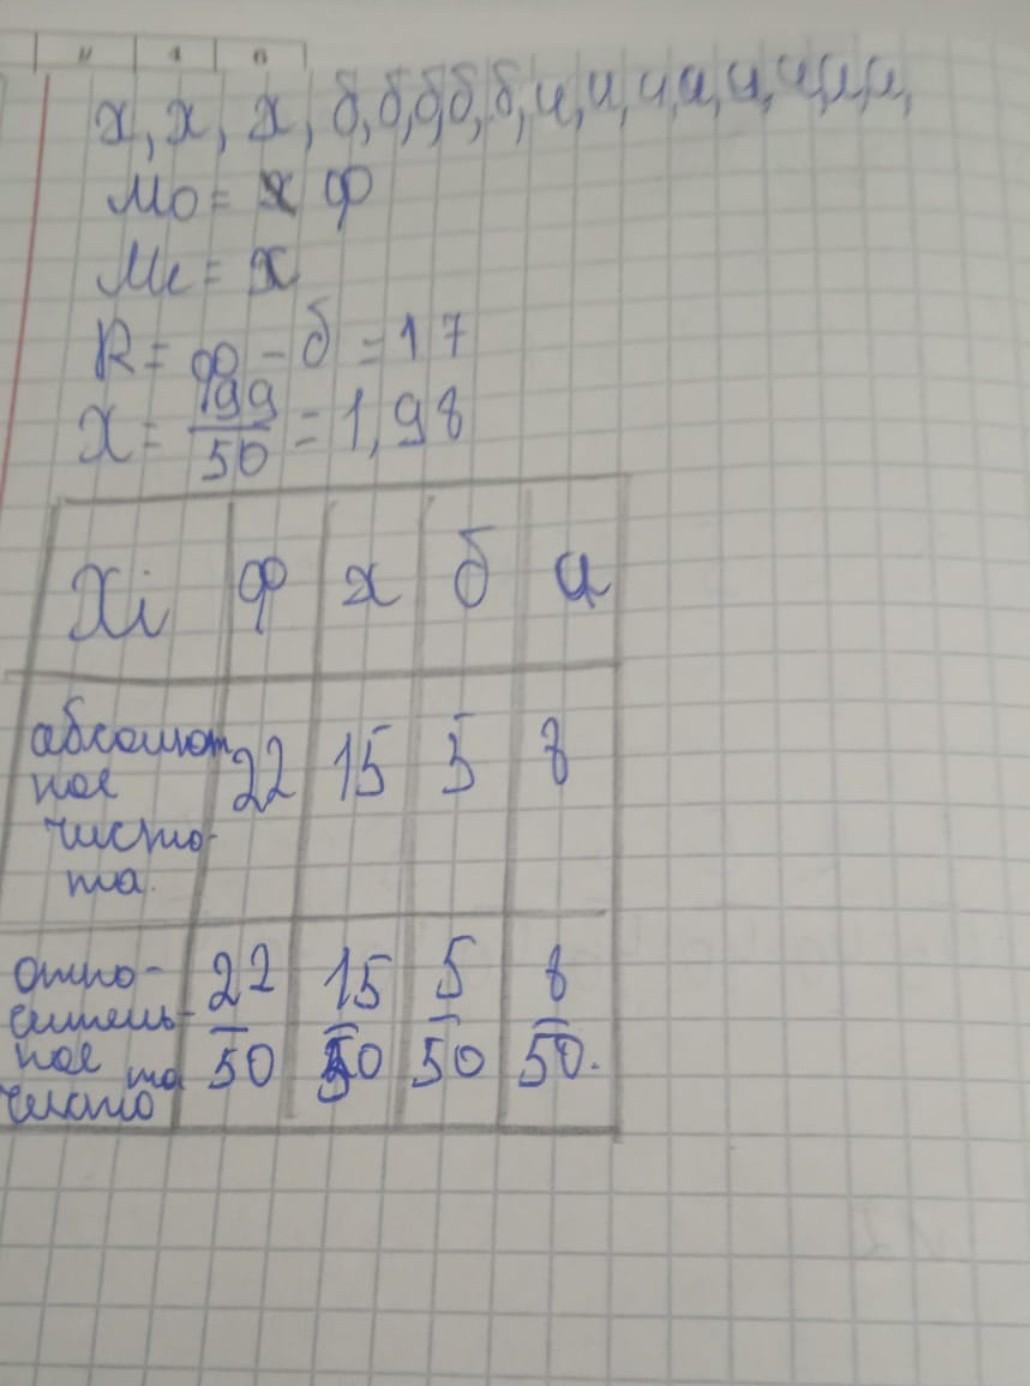 х, х, х, б, б, б, б, б, ц, ц, ц, ц, ц, ц, ц, ц,
Мо = х ф
Ме = х
R = ф - б = 17
X = 99/50 = 1,98
Xi ф х б ц
абсолют
ное
чисто-
та.
22 15 5 8
отно-
ситель-
ное
чисто та
22/50 15/50 5/50 8/50.